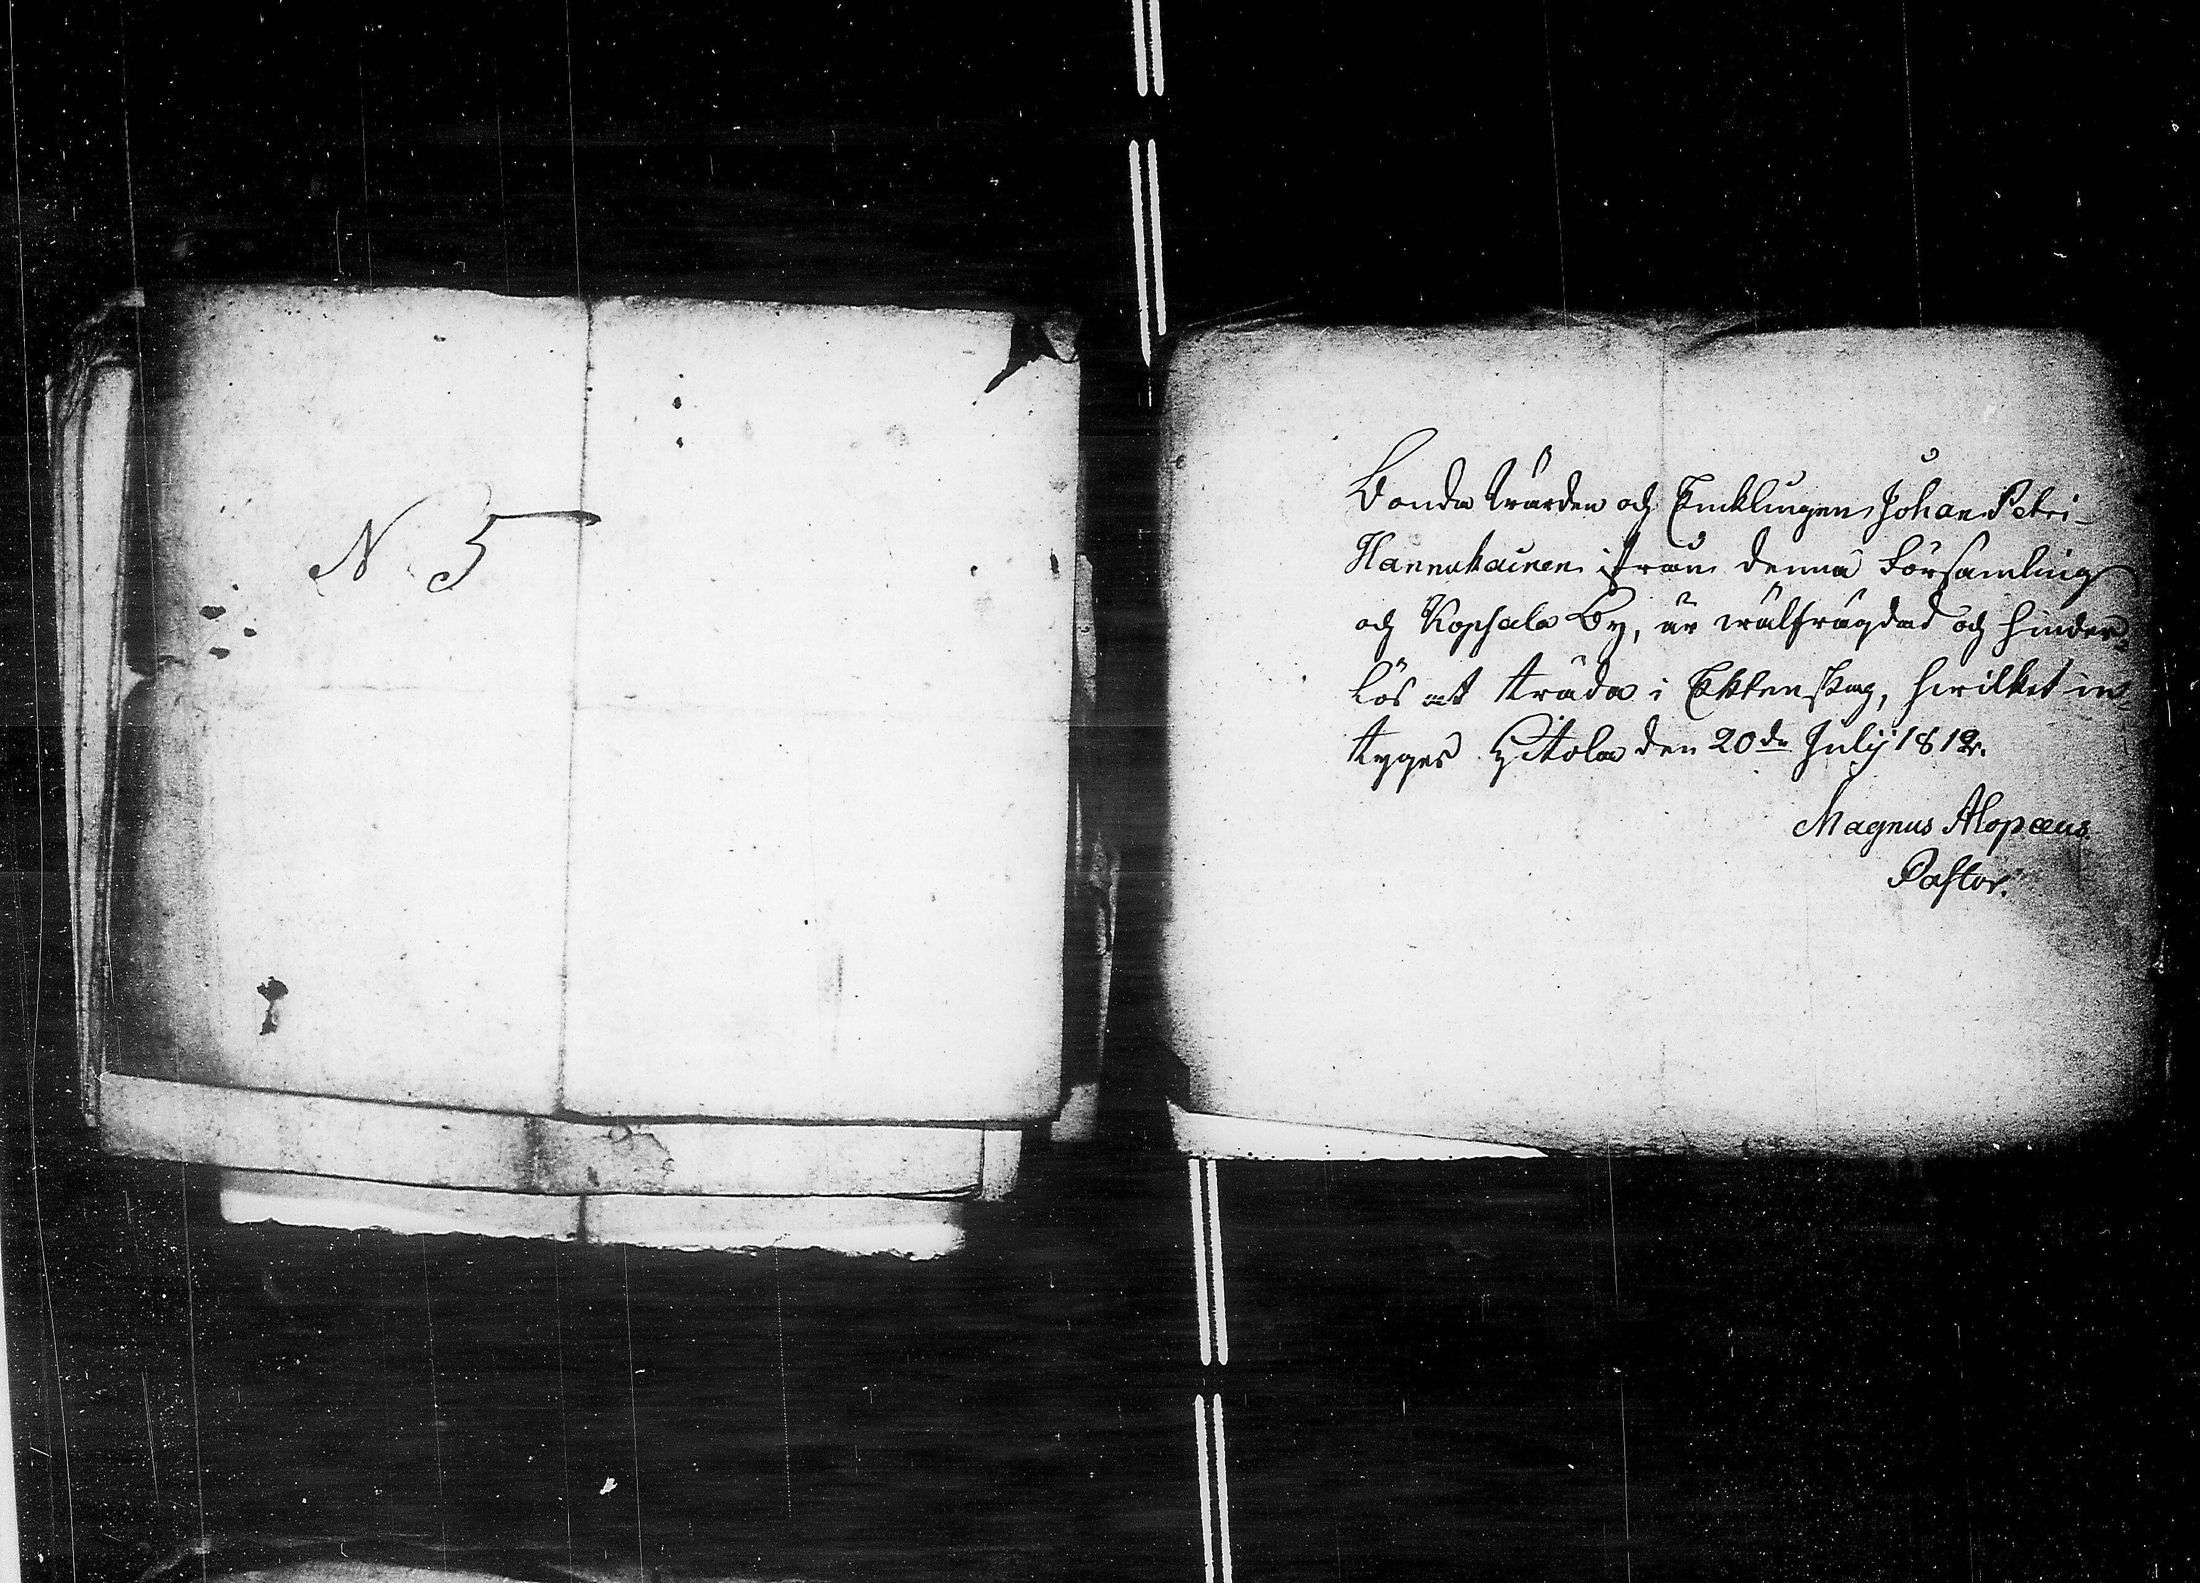 N 5
Bonda Wärden och Encklingen Johan Petri
Hannukainen ifrån denna Församling
och Kopsala By, är wälfrägdad och hinder
lös at träda i Ecktenskap, hwilket in
tyges Hitola den 20de Julij 1812.
Magnus Alopæus
Pastor.